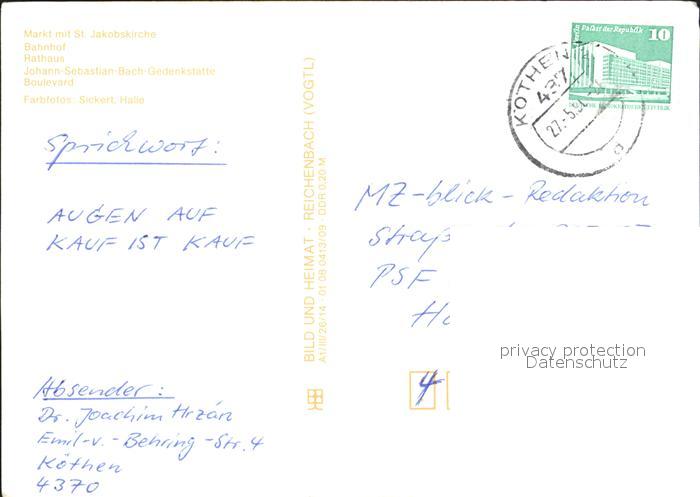 Markt mit St. Jakobskirche
Bahnhof
Rathaus
Johann-Sebastian-Bach-Gedenkstätte
Boulevard
Farbfotos: Sickert, Halle
Sprichwort:
AUGEN AUF
KAUF IST KAUF
Absender:
Dr. Joachim Hrzán
Emil-v.-Behring-Str. 4
Köthen
4370
BILD UND HEIMAT · REICHENBACH (VOGTL)
A1/III/26/14 · 01 08 0413/09 · DDR 0,20 M
Palast der Republik 10
KÖTHEN
437
MZ-blick-Redaktion
Straße
PSF
4
privacy protection
Datenschutz